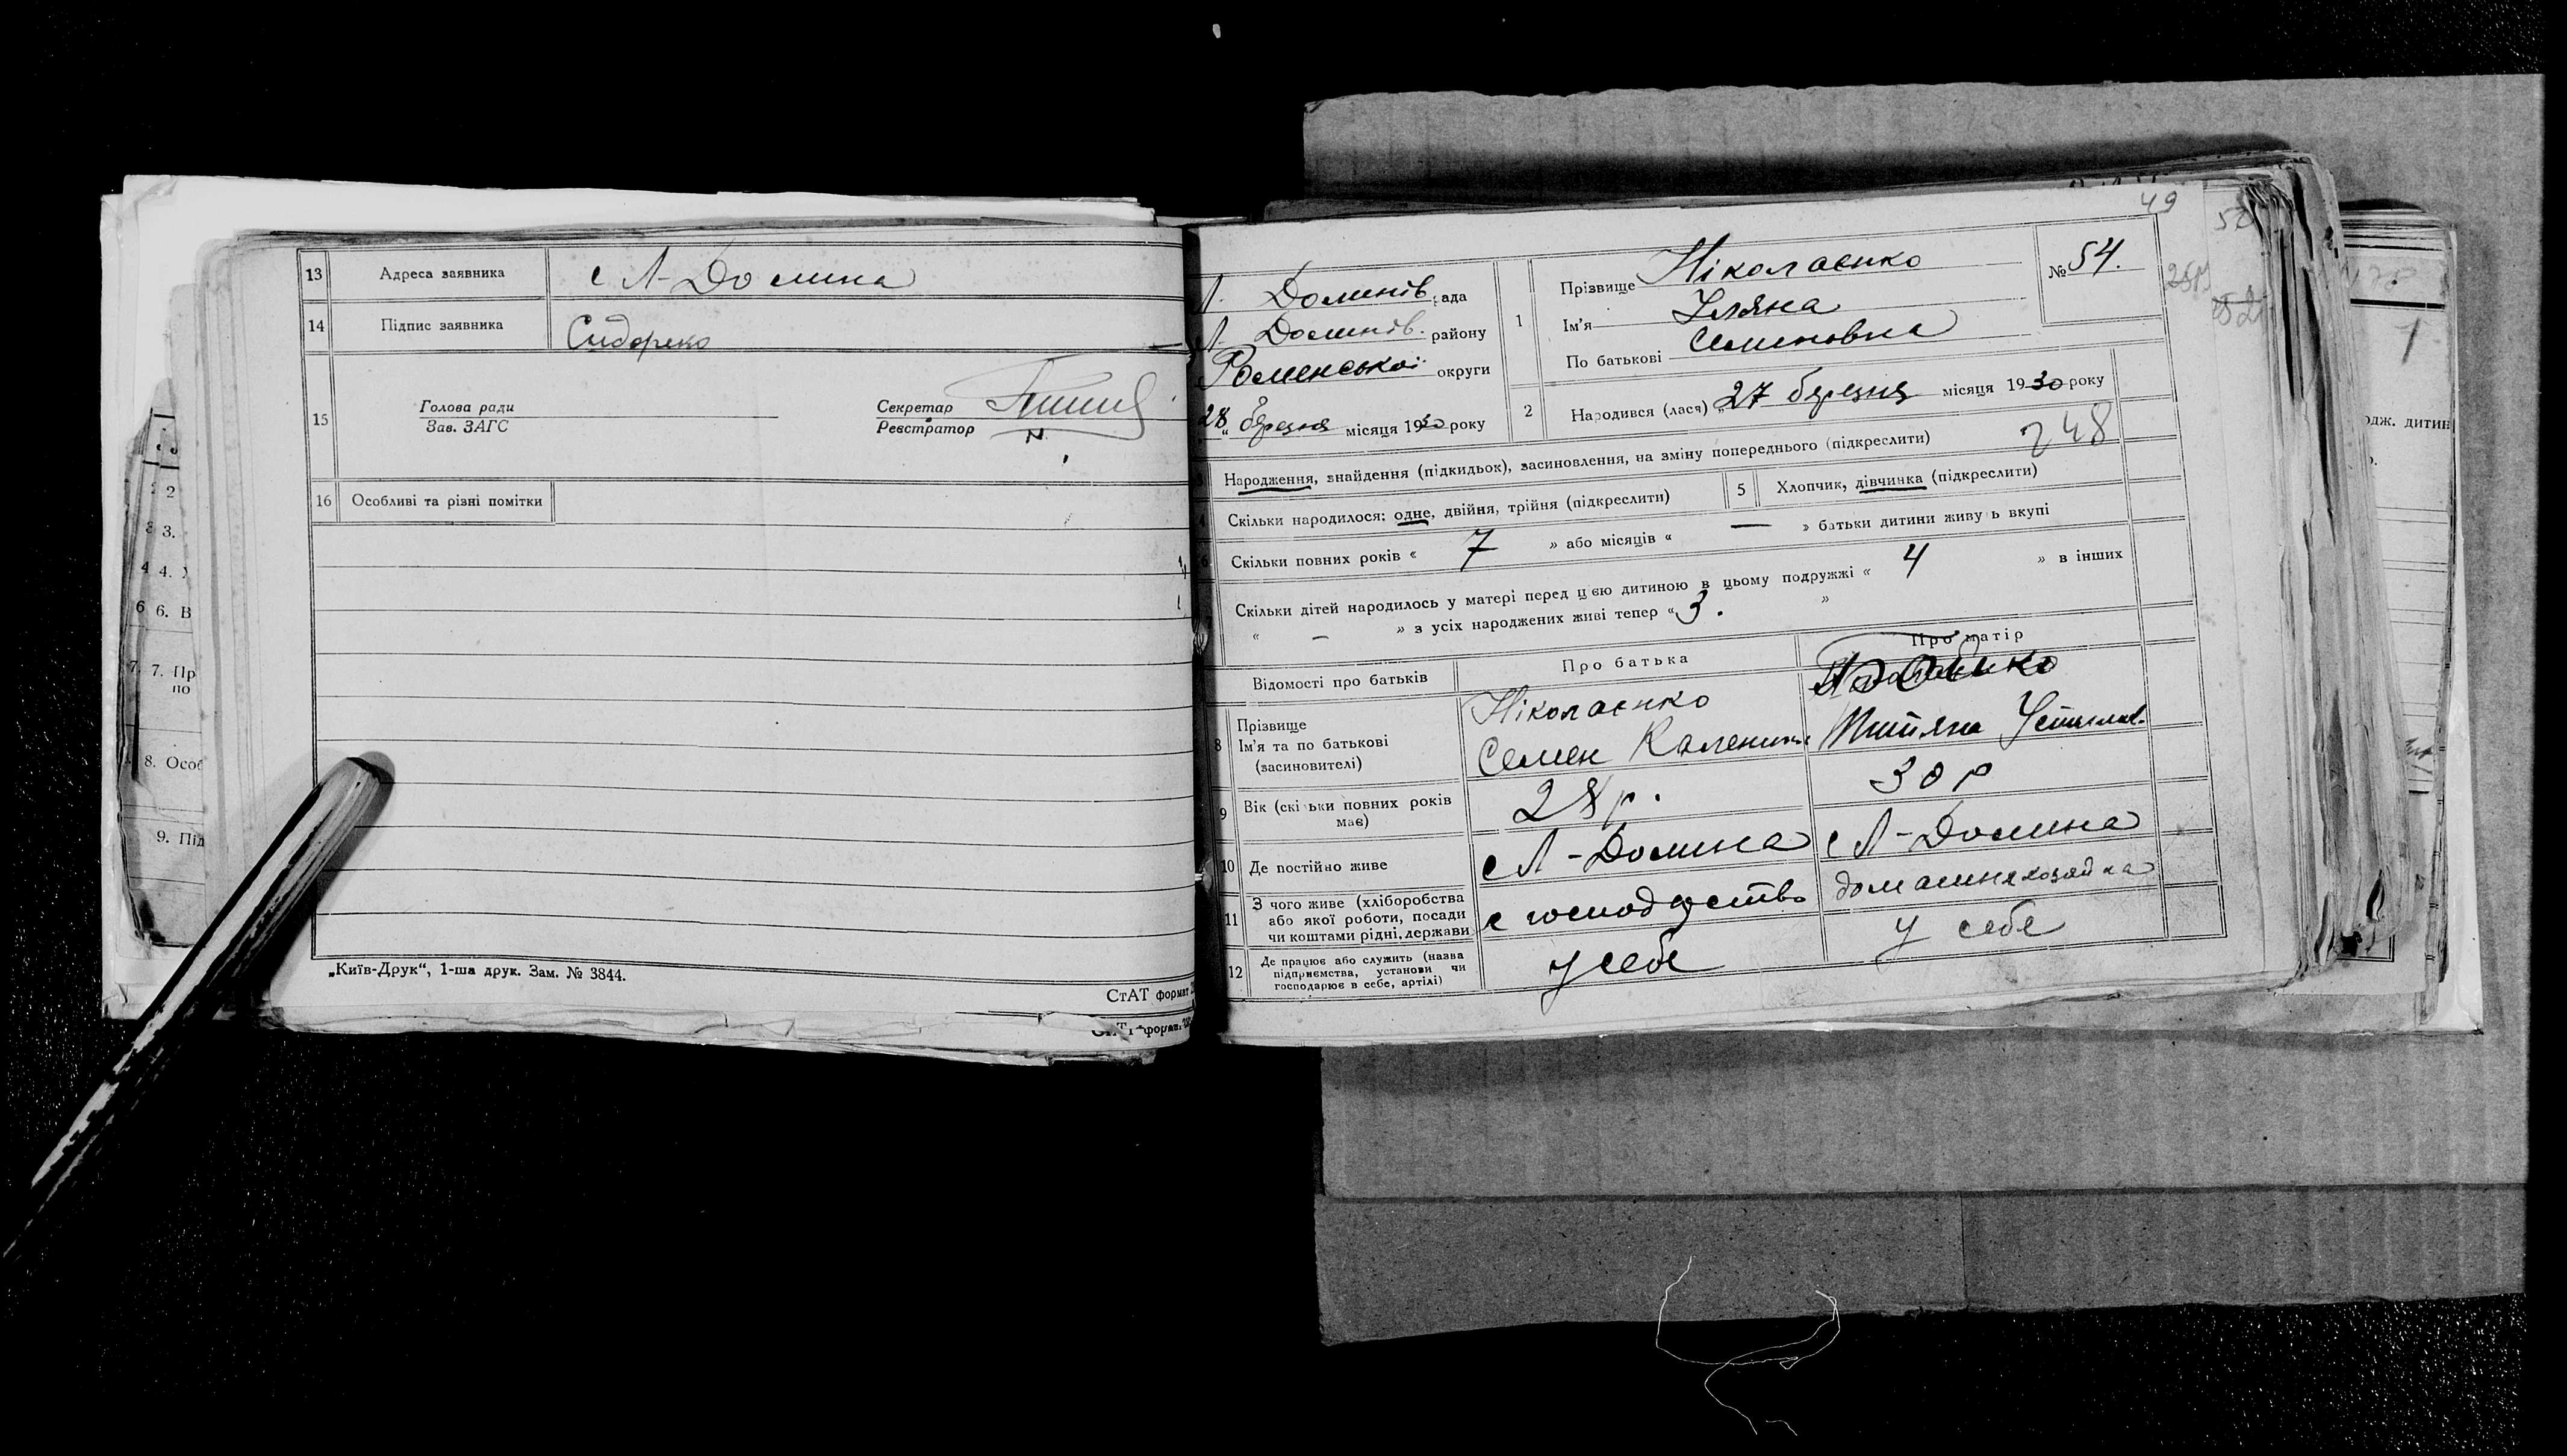 13 Адреса заявника с Л-Долина
14 Підпис заявника Сидоренко
15 Голова ради
Зав. ЗАГС
Секретар
Реєстратор
16 Особливі та різні помітки
„Київ-Друк“, 1-ша друк. Зам. № 3844.
СтАТ формат
49
Л. Долинів. рада
Л. Долинів. району
Роменської округи
28 березня місяця 1930 року
1 Прізвище Ніколаєнко
Ім'я Уляна
По батькові Семеновна
№ 54.
2 Народився (лася) „27 березня місяця 1930 року
248
Народження, знайдення (підкидьок), засиновлення, на зміну попереднього (підкреслити)
Скільки народилося: одне, двійня, трійня (підкреслити)
5 Хлопчик, дівчинка (підкреслити)
Скільки повних років « 7 » або місяців « — » батьки дитини живуть вкупі
Скільки дітей народилось у матері перед цією дитиною в цьому подружжі « 4 » в інших
« — » з усіх народжених живі тепер « 3. »
Відомості про батьків Про батька Про матір
8 Прізвище
Ім'я та по батькові
(засиновителі)
Ніколаєнко
Семен
9 Вік (скільки повних років має) 28 р. 30 р
10 Де постійно живе с Л-Долина с Л-Долина
11 З чого живе (хліборобства
або якої роботи, посади
чи коштами рідні, держави
с господарство домашня хозяйка
12 Де працює або служить (назва
підприємства, установи чи
господарює в себе, артілі)
у себе у себе